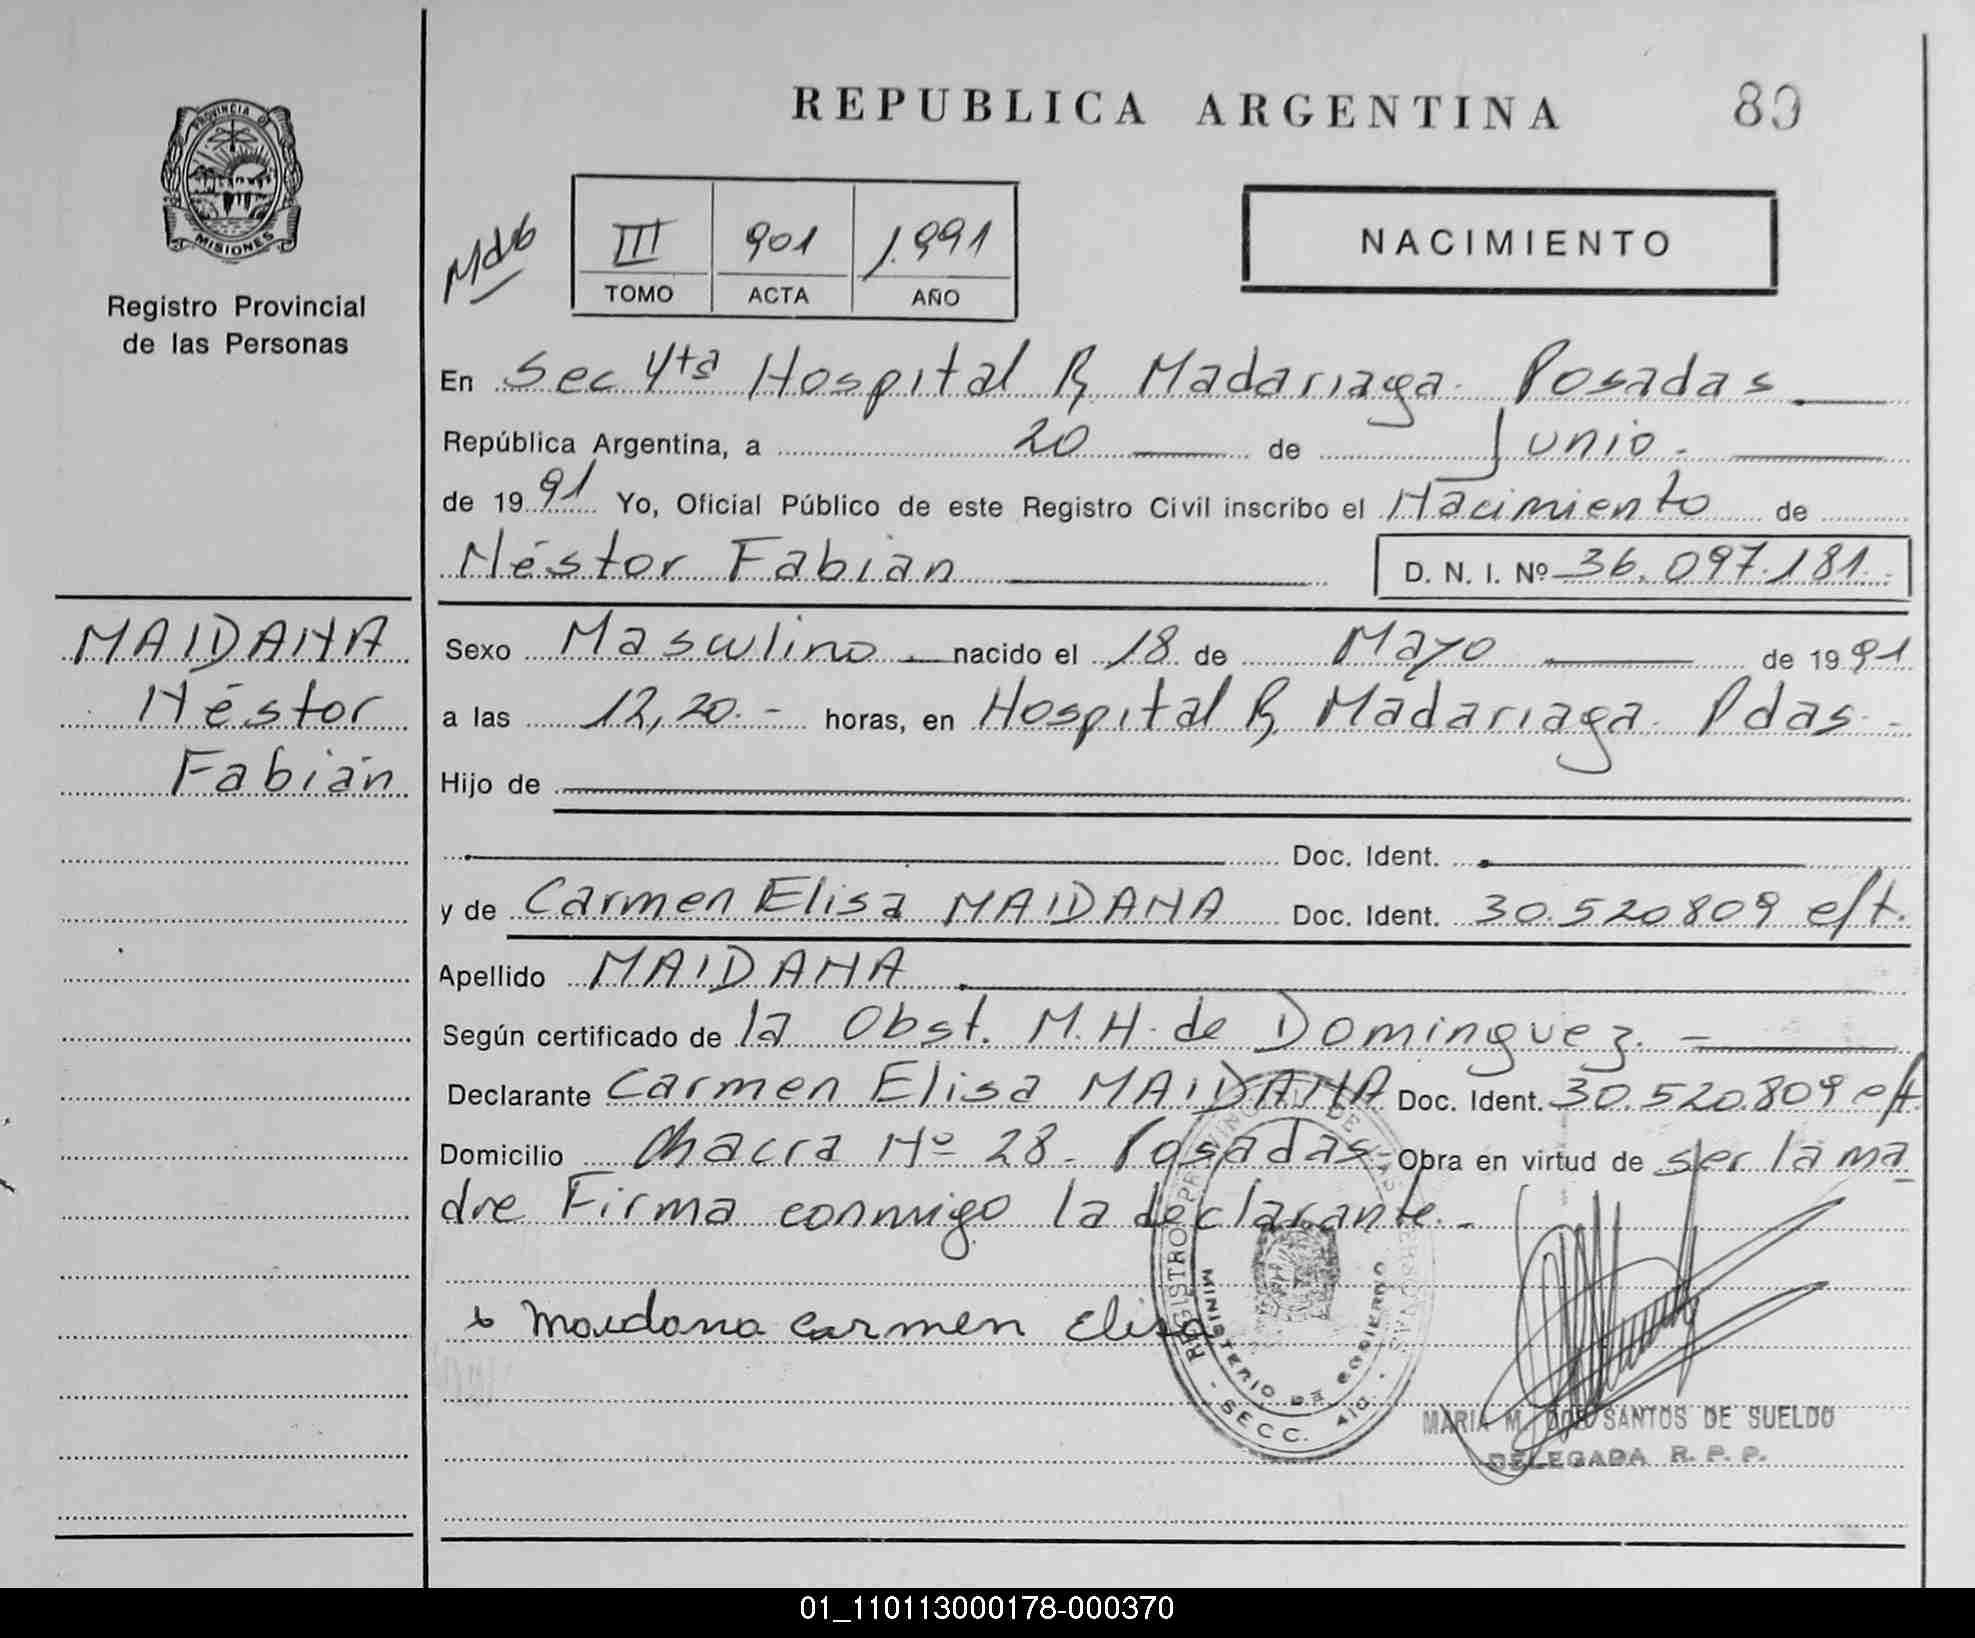 REPUBLICA ARGENTINA
80
PROVINCIA DE
MISIONES
Registro Provincial
de las Personas
Mdb
III 901 1.991
TOMO ACTA AÑO
NACIMIENTO
En Sec 4ta Hospital R. Madariaga. Posadas
República Argentina, a 20 de Junio.
de 1991 Yo, Oficial Público de este Registro Civil inscribo el Nacimiento de
Néstor Fabian D. N. I. Nº 36.097.181.-
MAIDANA
Néstor
Fabián
Sexo Masculino nacido el 18 de Mayo de 1991
a las 12,20.- horas, en Hospital R. Madariaga. Pdas.-
Hijo de
Doc. Ident.
y de Carmen Elisa MAIDANA Doc. Ident. 30.520809 e/t.
Apellido MAIDANA
Según certificado de la Obst. M.H. de Dominguez.-
Declarante Carmen Elisa MAIDANA Doc. Ident. 30.520.809 e/t.
Domicilio Chacra Nº 28- Posadas- Obra en virtud de ser la ma
dre Firma conmigo la declarante.-
Maidana Carmen Elisa
REGISTRO PROVINCIAL DE LAS PERSONAS
MINISTERIO DE GOBIERNO
- SECC. 4ta. -
MARIA M. DOS SANTOS DE SUELDO
DELEGADA R. P. P.
01_110113000178-000370